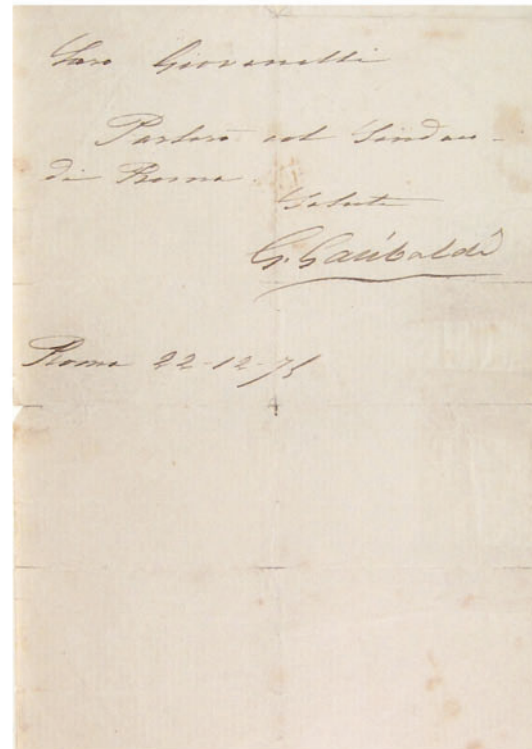 Caro Giovanelli
Parlerò col Sindaco
di Roma.
Salute
G. Garibaldi
Roma 22-12-75